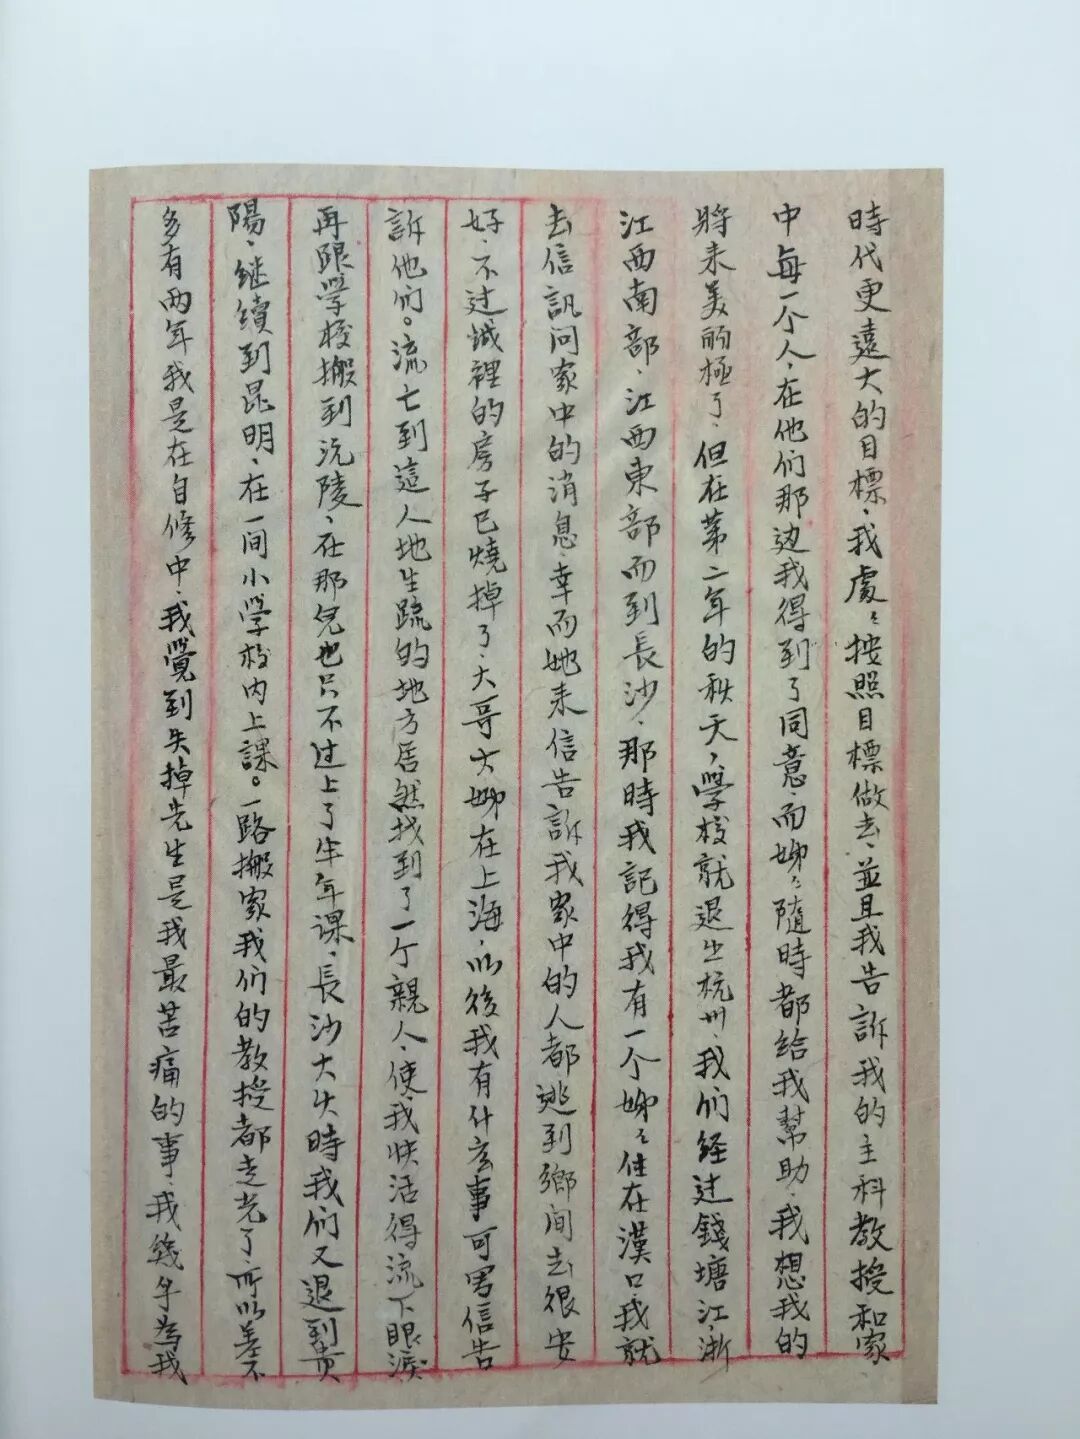 時代更遠大的目標、我處々按照目標做去、並且我告訴我的主科教授和家
中每一个人、在他们那边我得到了同意、而姊々隨時都給我幫助、我想我的
將来美丽極了、但在第二年的秋天，學校就退出杭州、我们经过錢塘江、浙
江西南部、江西東部而到長沙、那時我記得我有一个姊々住在漢口、我就
去信訊问家中的消息、幸而她来信告訴我家中的人都逃到鄉间去很安
好、不过城裡的房子已燒掉了、大哥大姊在上海、以後我有什么事可寫信告
訴他们。流亡到這人地生疏的地方居然找到了一个親人、使我快活得流下眼淚
再跟學校搬到沅陵、在那兒也只不过上了半年课、長沙大火時我们又退到贵
陽、继續到昆明、在一间小學校内上課。一路搬家我们的教授都走光了、所以差不
多有两年我是在自修中、我覺到失掉先生是我最苦痛的事、我幾乎為我